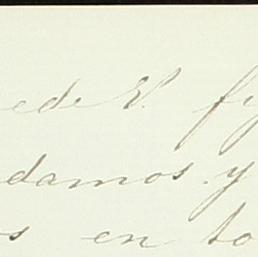 ede V. fi
damos. y
s en to